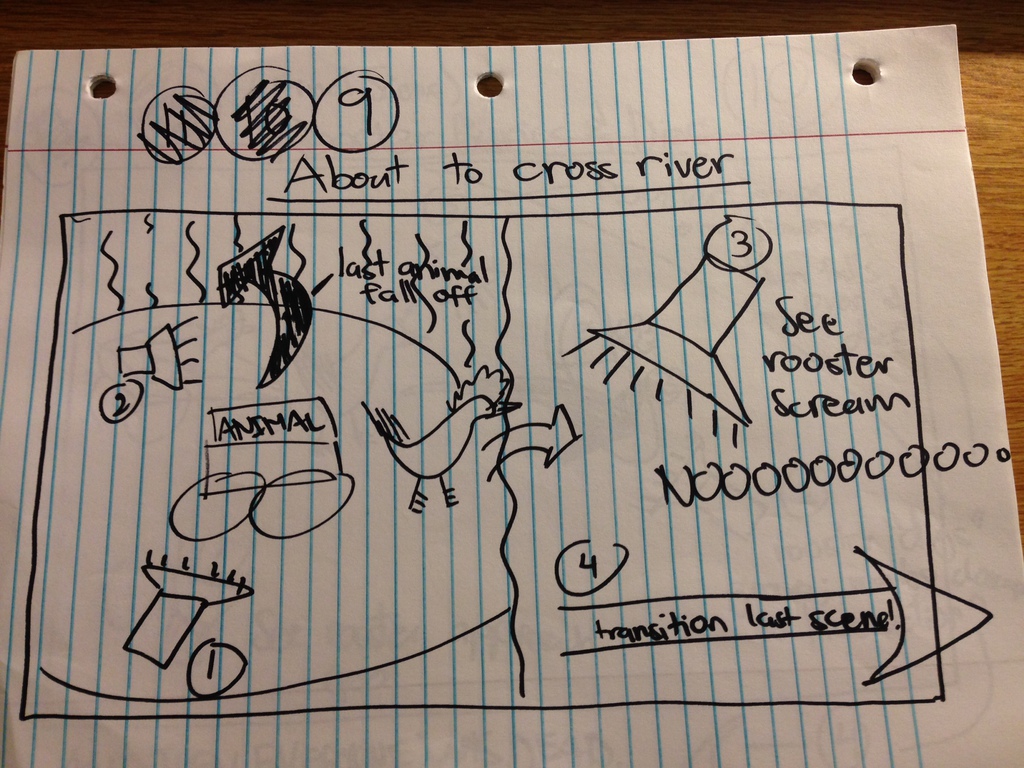 9
About to cross river
last animal
fall off
2
ANIMAL
1
3
See
rooster
scream
NOOOOOOOOOOOO
4
transition last scene!